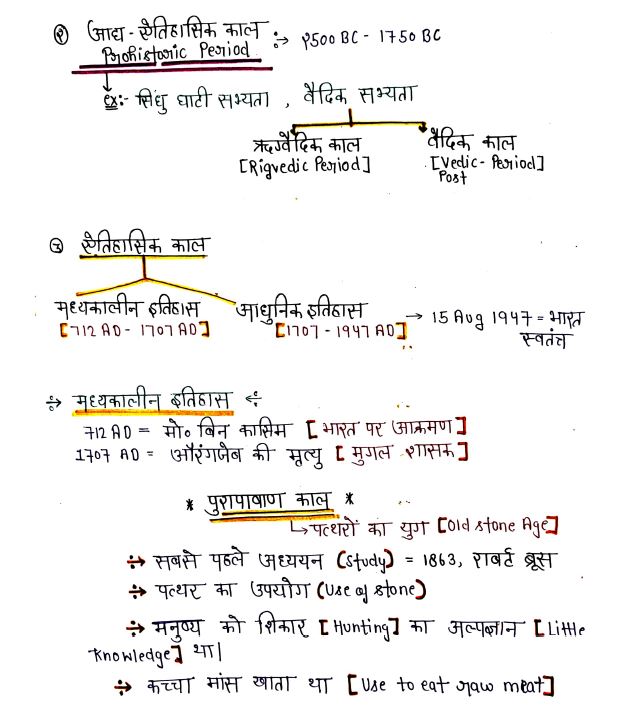 ② आद्य - ऐतिहासिक काल :→ 2500 BC - 1750 BC
Prohistoric Period
ex:- सिंधु घाटी सभ्यता , वैदिक सभ्यता
ऋग्वैदिक काल वैदिक काल
[Rigvedic Period] [Vedic - Period]
Post
③ ऐतिहासिक काल
मध्यकालीन इतिहास आधुनिक इतिहास → 15 Aug 1947 = भारत
[712 AD - 1707 AD] [1707 - 1947 AD] स्वतंत्र
÷> मध्यकालीन इतिहास <÷
712 AD = मो० बिन कासिम [भारत पर आक्रमण]
1707 AD = औरंगजेब की मृत्यु [मुगल शासक]
* पुरापाषाण काल *
↳ पत्थरों का युग [Old stone Age]
÷> सबसे पहले अध्ययन (Study) = 1863, राबर्ट ब्रूस
÷> पत्थर का उपयोग (Use of stone)
÷> मनुष्य को शिकार [Hunting] का अल्पज्ञान [Little
Knowledge] था|
÷> कच्चा मांस खाता था [Use to eat raw meat]